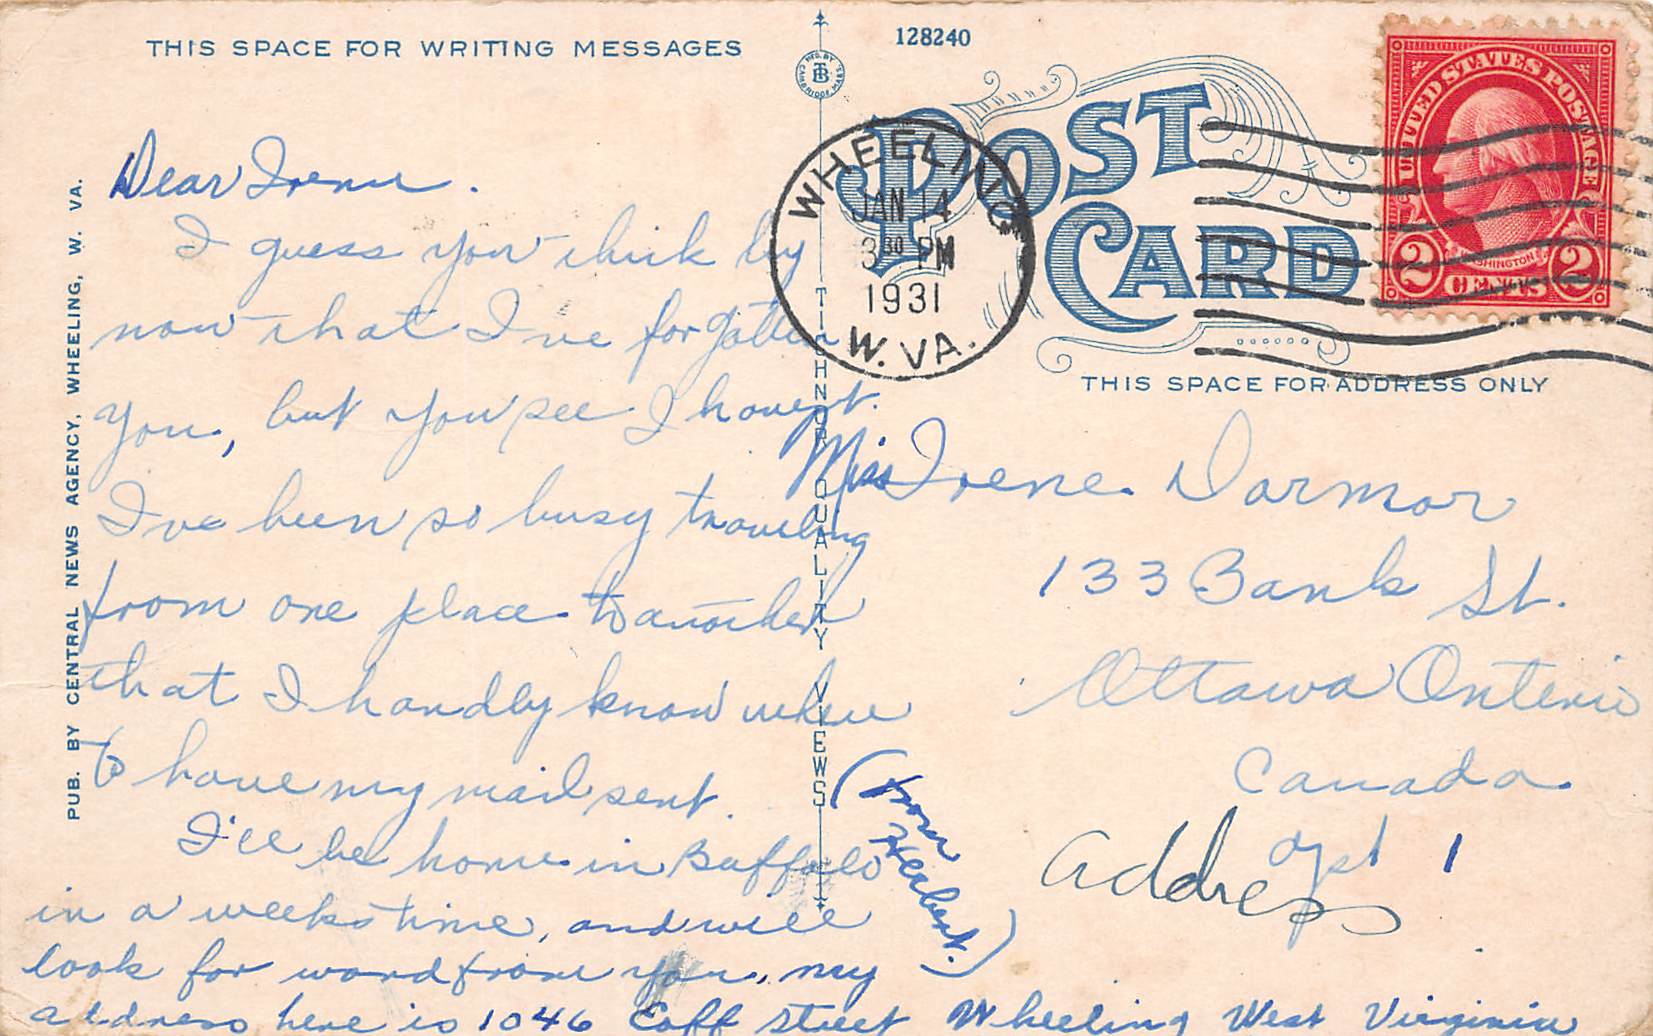 THIS SPACE FOR WRITING MESSAGES
128240
MFG. BY
TB
CAMBRIDGE, MASS.
POST
CARD
UNITED STATES POSTAGE
WASHINGTON
2 CENTS 2
WHEELING
JAN 14
3 30 PM
1931
W. VA.
THIS SPACE FOR ADDRESS ONLY
PUB. BY CENTRAL NEWS AGENCY, WHEELING, W. VA.
TICHNOR QUALITY VIEWS
Dear Irene.
I guess you think by
now that I've forgotten
you, but you see I havent.
I've been so busy traveling
from one place to another
that I hardly know where
to have my mail sent.
I'll be home in Buffalo
in a weeks time, and will
look for word from you, my
address here is 1046 Street Wheeling West Virginia
(From
Herbert.)
Miss Irene Darmor
133 Bank St.
Ottawa Onterio
Canada
apt 1
address